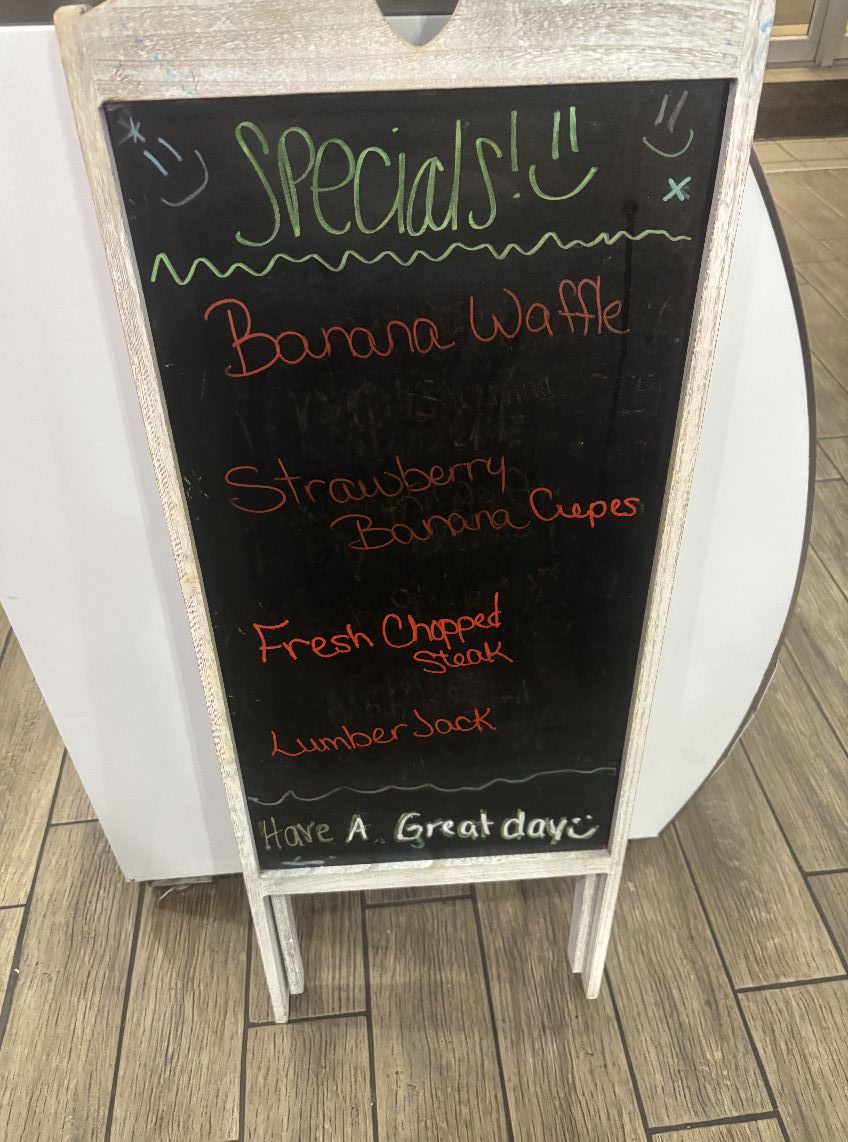 Specials!
Banana Waffle
Strawberry
Banana Crepes
Fresh Chopped
Steak
Lumber Jack
Have A Great day